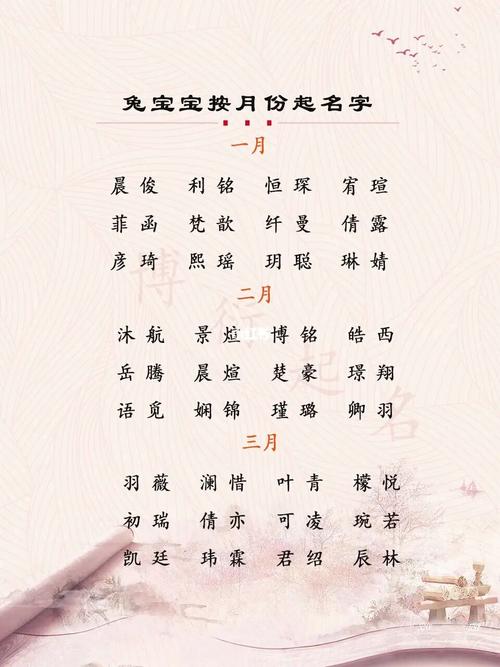 兔宝宝按月份起名字
一月
晨俊 利铭 恒琛 宥瑄
菲函 梵歆 纤曼 倩露
彦琦 熙瑶 玥聪 琳婧
二月
沐航 景煊 博铭 皓西
岳腾 晨煊 楚豪 璟翔
语觅 娴锦 瑾璐 卿羽
三月
羽薇 澜惜 叶青 檬悦
初瑞 倩亦 可凌 琬若
凯廷 玮霖 君绍 辰林
博衍起名